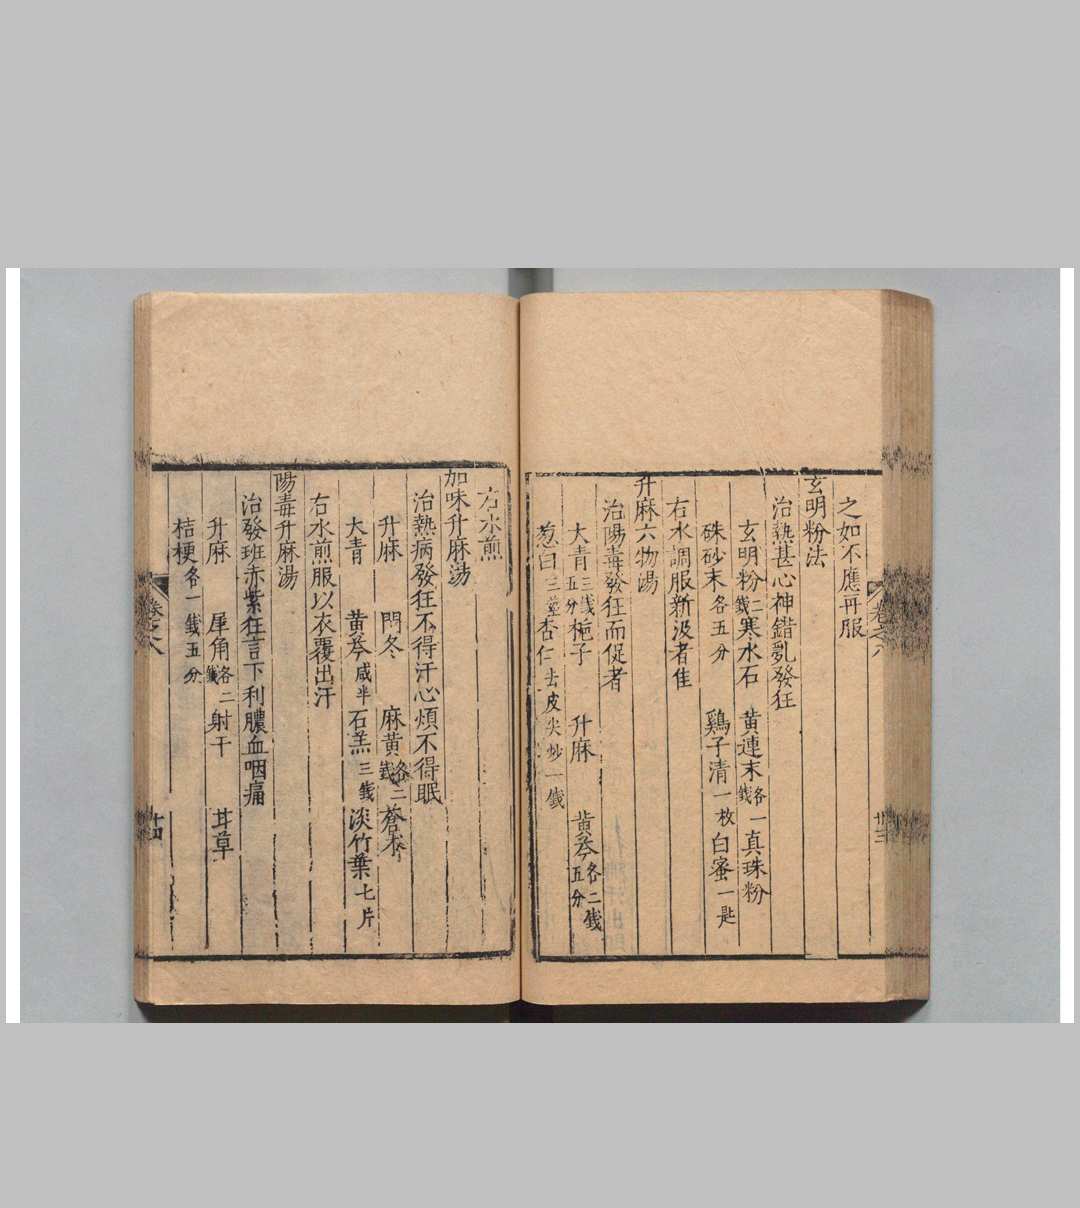 之如不應再服
玄明粉法
治熱甚心神錯亂發狂
玄明粉二錢寒水石 黃連末各一錢真珠粉
硃砂末各五分 鷄子清一枚白蜜一匙
右水調服新汲者佳
升麻六物湯
治陽毒發狂而促者
大青三錢五分梔子 升麻 黃芩各二錢五分
葱白三莖杏仁去皮尖炒一錢
卷之八
廿三
右水煎
加味升麻湯
治熱病發狂不得汗心煩不得眠
升麻 門冬 麻黃各二錢蒼朮
大青 黃芩減半石羔三錢淡竹葉七片
右水煎服以衣覆出汗
陽毒升麻湯
治發班赤紫狂言下利膿血咽痛
升麻 犀角各二錢射干 甘草
桔梗各一錢五分
卷之八
廿四